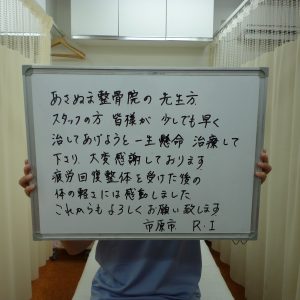 あさぬま整骨院の 先生方
スタッフの方 皆様が 少しでも早く
治してあげようと一生懸命 治療して
下さり 大変感謝しております
疲労回復整体を受けた後の
体の軽さには感動しました
これからもよろしくお願い致します
市原市 R.I